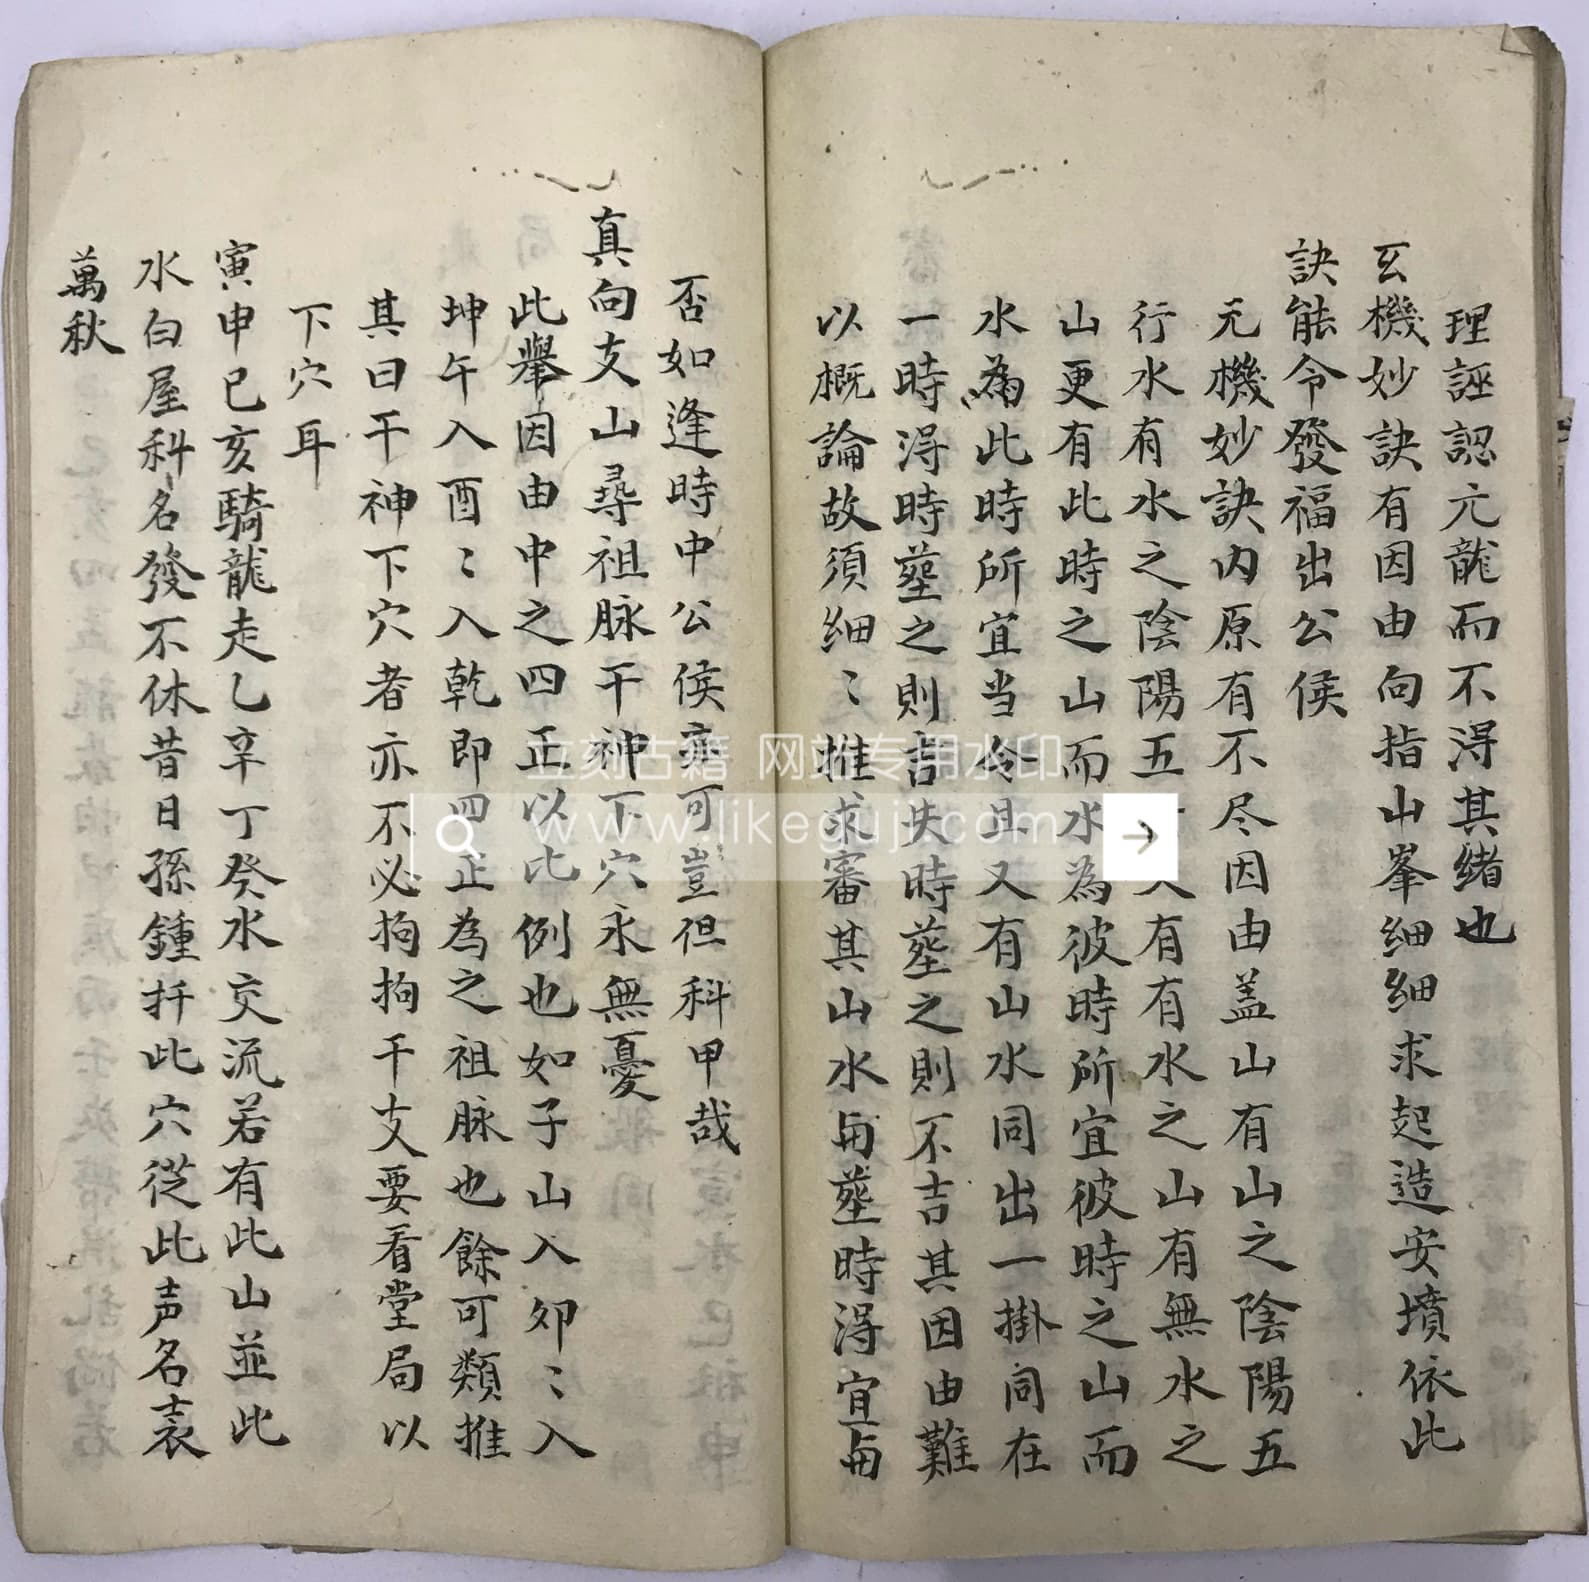 理誣認亢龍而不得其緒也
玄機妙訣有因由向指山峯細細求起造安墳依此
訣能令發福出公侯
元機妙訣内原有不尽因由盖山有山之陰陽五
行水有水之陰陽五 有有水之山有無水之
山更有此時之山而水為彼時所宜彼時之山而
水為此時所宜当令且又有山水同出一掛同在
一時得時塟之則吉失時塟之則不吉其因由難
以概論故須細〻推求審其山水与塟時得宜与
否如逢時中公侯亦可豈但科甲哉
真向支山尋祖脉干神下穴永無憂
此舉因由中之四正以此例也如子山入夘〻入
坤午入酉〻入乾即四正為之祖脉也餘可類推
其曰干神下穴者亦不必拘拘干支要看堂局以
下穴耳
寅申巳亥騎龍走乙辛丁癸水交流若有此山並此
水白屋科名發不休昔日孫鍾扦此穴從此声名表
萬秋
立刻古籍 网站专用水印
www.likeguji.com